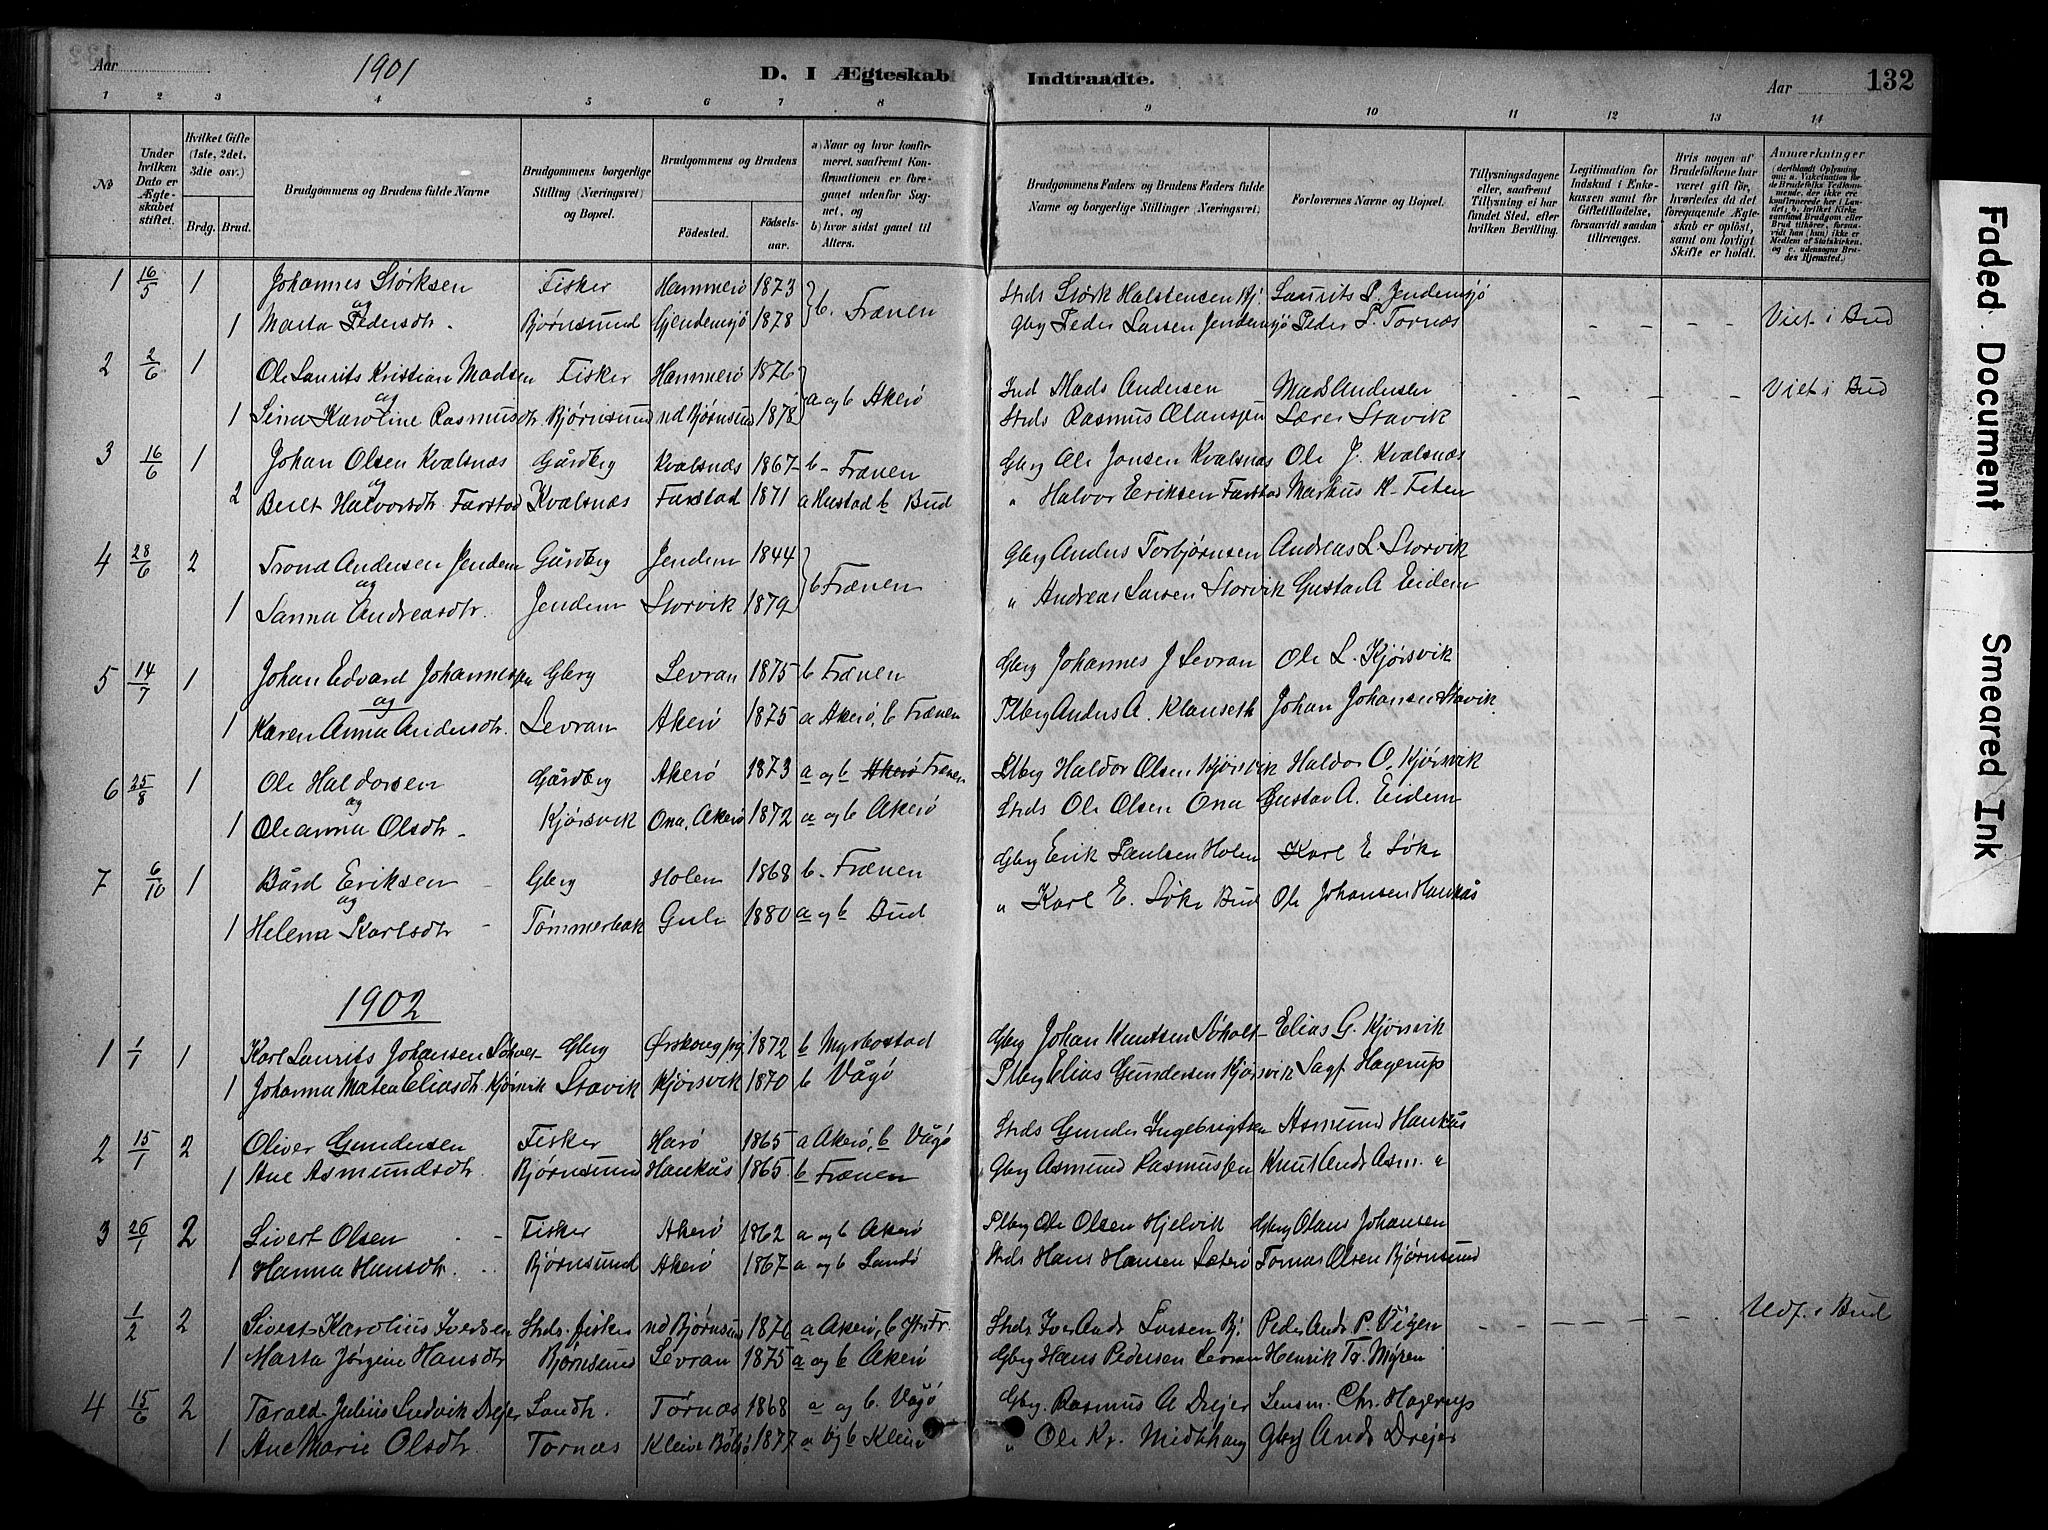 Aar 1901 D. I Ægteskab Indtraadte. Aar 132
1 2 3 4 5 6 7 8 9 10 11 12 13 14
No
Under hvilken Dato er Ægteskabet stiftet.
Hvilket Gifte (1ste, 2det, 3die osv.)
Brdg. Brud.
Brudgommens og Brudens fulde Navne
Brudgommens borgerlige Stilling (Næringsvei) og Bopæl.
Brudgommens og Brudens
Fødested. Fødselsaar.
a) Naar og hvor konfirmeret, saafremt Konfirmationen er foregaaet udenfor Sognet, og
b) hvor sidst gaaet til Alters.
Brudgommens Faders og Brudens Faders fulde Navne og borgerlige Stillinger (Næringsvei)
Forlovernes Navne og Bopæl.
Tillysningsdagene eller, saafremt Tillysning ei har fundet Sted, efter hvilken Bevilling.
Legitimation for Indskud i Enkekassen samt for Giftetilladelse, forsaavidt saadan tiltrænges.
Hvis nogen af Brudefolkene har været gift før, hvorledes da det foregaaende Ægteskab er opløst, samt om lovligt Skifte er holdt.
Anmærkninger
(deriblandt Oplysning om: a. Vakcination for de Brudefolks Vedkommende, der ikke ere konfirmerede her i Landet, b. hvilket Kirkesamfund Brudgom eller Brud tilhører, forsaavidt han (hun) ikke er Medlem af Statskirken, og c. udensogns Brudes Hjemsted.)
1 16/5 1 Johannes Størksen Fisker Hammerø 1873 b. Frænen Strds Størk Halstensen Bj. Laurits P. Jendemsjø
og
1 Marta Pedersdtr. Bjørnsund Gjendemsjø 1878 Gbrg Peder Larsen Jendemsjø Peder P. Tornæs - - - - Viet i Bud
2 2/6 1 Ole Laurits Kristian Madsen Fisker Hammerø 1876 a og b Akerø Ind Mads Andersen Mads Andersen - - - - Viet i Bud
og
1 Sina Karoline Rasmusdtr. Bjørnsund nd Bjørnsund 1878 Strds Rasmus Olaussen Lærer Stavik
3 16/6 1 Johan Olsen Kvalsnæs Gårdbg Kvalsnæs 1867 b- Frænen Gbrg Ole Jonsen Kvalsnæs Ole J. Kvalsnæs
og
2 Berit Halvorsdtr. Farstad Kvalsnæs Farstad 1871 a Hustad b Bud " Halvor Eriksen Farstad Markus K.
4 28/6 2 Trond Andersen Jendem Gårdbg Jendem 1844 b Frænen Gbrg Anders Torbjørnsen Andreas L Storvik
og
1 Sanna Andreasdtr. Jendem Storvik 1879 " Andreas Larsen Storvik Gustav A Eidem
5 14/7 1 Johan Edvard Johannessen Gbrg Levran 1875 b Frænen Gbrg Johannes J Levran Ole L. Kjørsvik
og
1 Karen Anna Andersdtr. Levran Akerø 1875 a Akerø, b Frænen Plbrg Anders A. Klauseth Johan Johansen Stavik
6 25/8 1 Ole Haldorsen Gårdbg Akerø 1873 a og b Akerø Frænen Plbrg Haldor Olsen Kjørsvik Haldor O. Kjørsvik
og
1 Oleanna Olsdtr - Kjørsvik Ona, Akerø 1872 a og b Akerø Strds Ole Olsen Ona Gustav A. Eidem
7 6/10 1 Bård Eriksen - Gbrg Holen 1868 b. Frænen Gbrg Erik Paulsen Holen Karl E Søke
og
1 Helena Karlsdtr - Tømmerbak Gule 1880 a og b Bud " Karl E. Søke Bud Ole Johansen Haukås
1902
1 1/1 1 Karl Laurits Johansen Gbrg Ørskoug 1872 b Myrbostad Gbrg Johan Knutsen Søholt Elias G. Kjørsvik
1 Johanna Matea Eliasdtr. Kjørsvik Stavik Kjørsvik 1870 b Vågø Plbrg Elias Gundersen Kjørsvik Sagf Hagerup
2 15/1 2 Oliver Gundersen Fisker Harø 1865 a Akerø, b Vågø Strds Gunder Ingebrigtsen Asmund Haukås
1 Ane Asmundsdtr. Bjørnsund Haukås 1865 b Frænen Gbrg Asmund Rasmussen Knut Andr Asm. "
3 26/1 2 Sivert Olsen - Fisker Akerø 1862 a og b Akerø Plbrg Ole Olsen Hjelvik Gbrg Olaus Johansen
1 Hanna Hansdtr. Bjørnsund Akerø 1867 a og b Sandø Strds Hans Hansen Sæterø Tomas Olsen Bjørnsund
1/2 2 Sivert Karolius Iversen Strds. fisker nd Bjørnsund 1876 a Akerø, b Strds Iver Andr Larsen Bj. Peder Andr P. Vigen - - - - - Udf. i Bud
1 Marta Jørgine Hansdtr Bjørnsund Levran 1875 a og b Akerø Gbrg Hans Pedersen Levran Henrik Tr. Myren
4 15/6 2 Tarald Julius Ludvik Drejer Landh. Tornæs 1868 a og b. Vågø Gbrg. Rasmus A Drejer Lensm. Chr. Hagerup
1 Ane Marie Olsdtr. Tornæs Kleive Bolsø 1877 a og b Kleive " Ole Kr. Midthaug Gbrg Andr Drejer
Faded Document
Smeared Ink